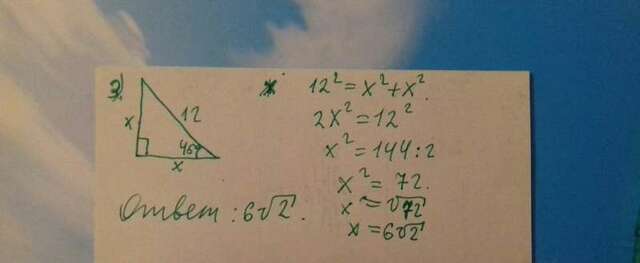 3)
12
x
45°
x
12² = x² + x².
2x² = 12²
x² = 144 : 2
x² = 72.
x = √72
x = 6√2
Ответ : 6√2.